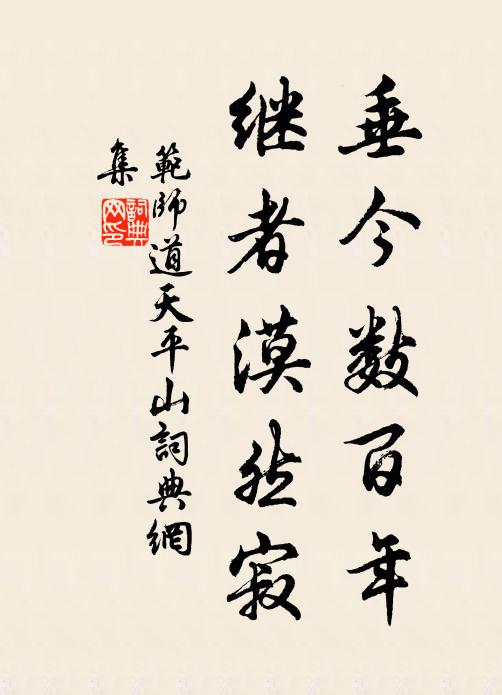 垂今数百年
继者漠然寂
範師道天平山詞典網
集
詞典
网印